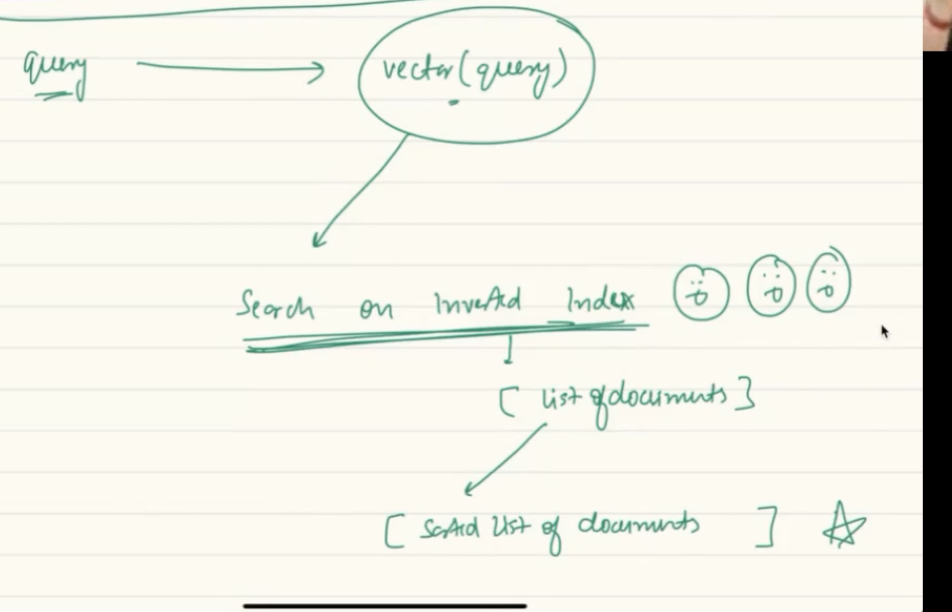 query vector(query)
Search on Inverted Index
[ list of documents ]
[ Sorted list of documents ]